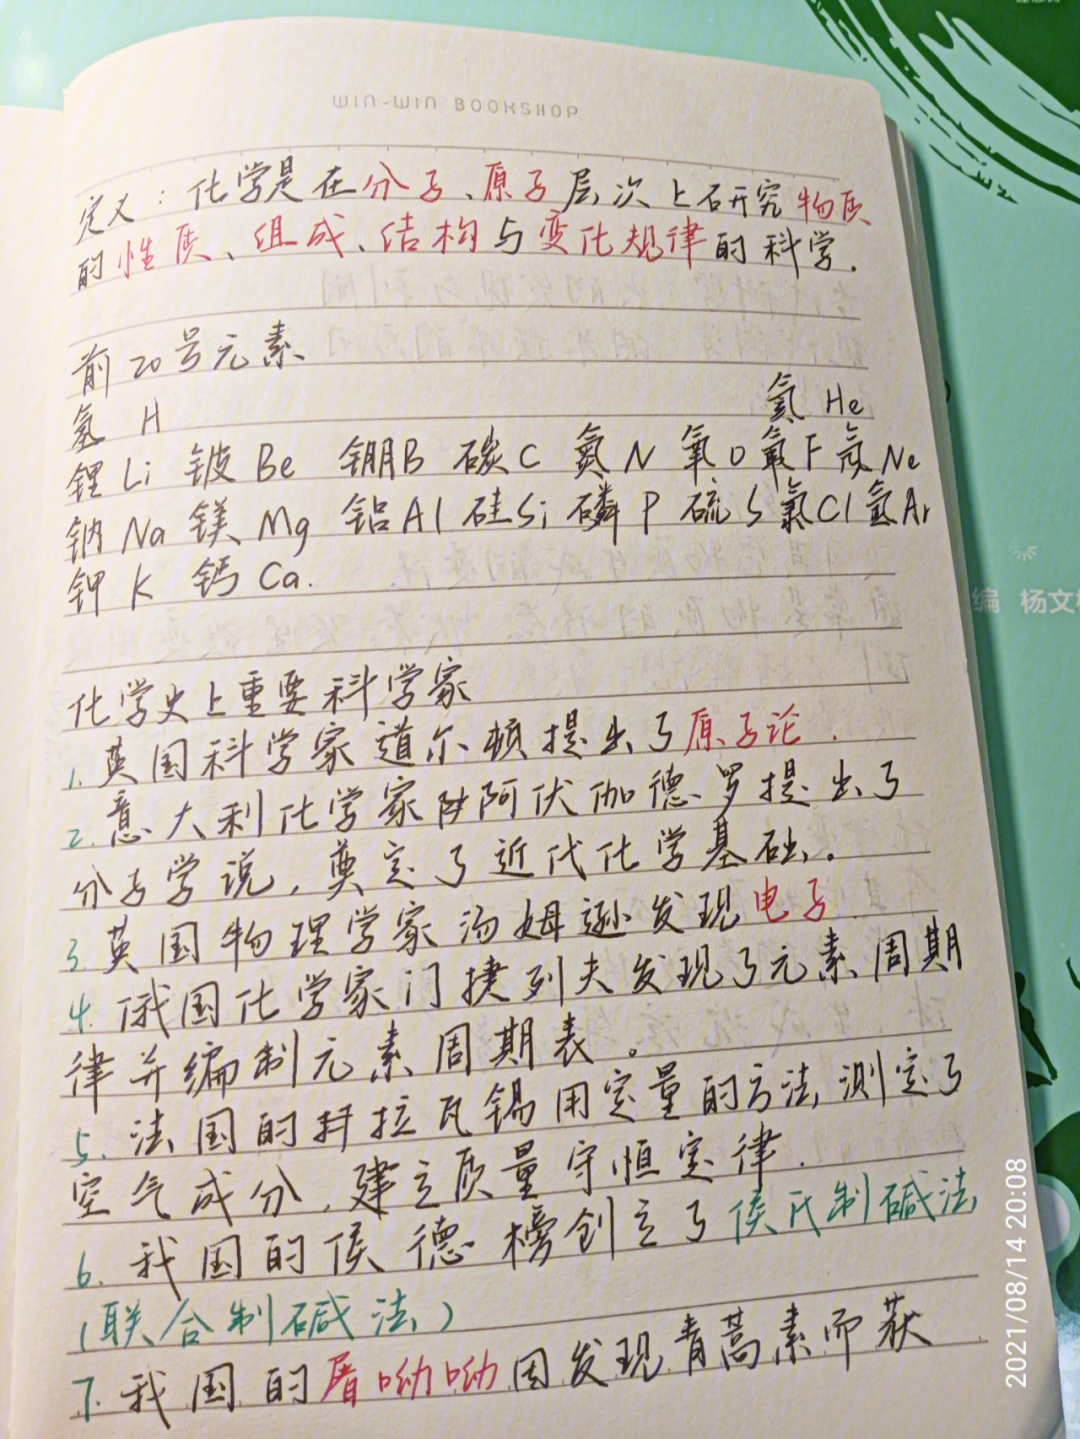 WIN-WIN BOOKSHOP
定义：化学是在分子、原子层次上研究物质
的性质、组成、结构与变化规律的科学.
前20号元素
氢 H 氦 He
锂 Li 铍 Be 硼 B 碳 C 氮 N 氧 O 氟 F 氖 Ne
钠 Na 镁 Mg 铝 Al 硅 Si 磷 P 硫 S 氯 Cl 氩 Ar
钾 K 钙 Ca.
化学史上重要科学家
1. 英国科学家道尔顿提出了原子论.
2. 意大利化学家阿伏伽德罗提出了
分子学说，奠定了近代化学基础。
3. 英国物理学家汤姆逊发现电子.
4. 俄国化学家门捷列夫发现了元素周期
律并编制元素周期表。
5. 法国的拉瓦锡用定量的方法测定了
空气成分，建立质量守恒定律.
6. 我国的侯德榜创立了侯氏制碱法
(联合制碱法)
7. 我国的屠呦呦因发现青蒿素而获
编 杨文
2021/08/14 20:08